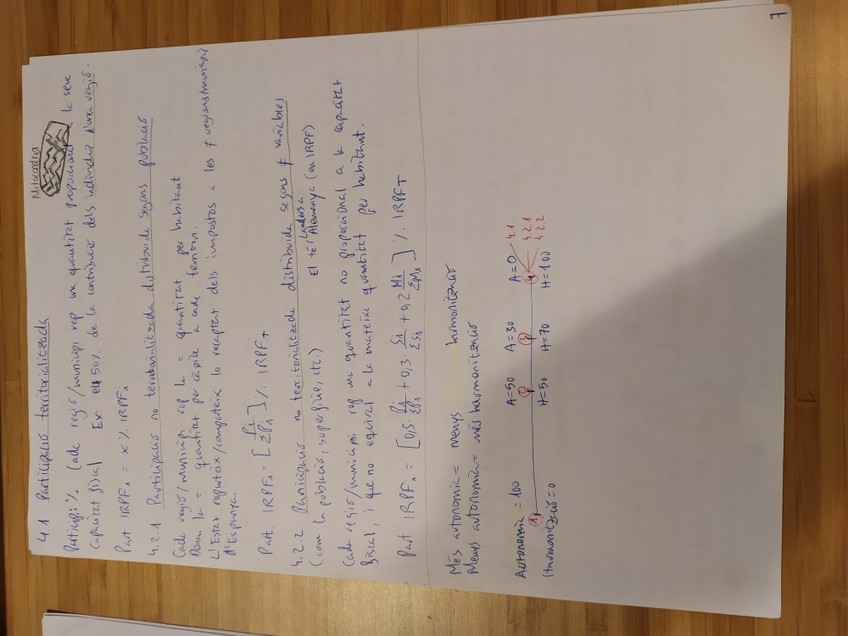 Mitocondria
4.1 Participació territorialitzada
Particip: % Cada regió/municipi rep una quantitat proporcional a la seva
capacitat fiscal. Ex: el 50% de la contribució dels individus d'una regió.
Part IRPFₙ = x % IRPFₙ
4.2.1 Participació no territorialitzada distribuïda segons població
Cada regió/municipi rep la = quantitat per habitant
Donen la = quantitat per càpita a cada territori.
L'Estat reparteix/computeix lo recaptat dels impostos a les ≠ regions/municipis
d'Espanya.
Part. IRPFₙ = [Pᵢ / ΣPₙ] % IRPF_T
4.2.2 Participació no territorialitzada distribuïda segons ≠ variables
(com la població, superfície, etc.)
El té Landers a
Alemanya (en IRPF)
Cada regió/municipi rep una quantitat no proporcional a la capacitat
fiscal, i que no equival a la mateixa quantitat per habitant.
Part IRPFₙ = [0,5 · Pᵢ / ΣPₙ + 0,3 Sᵢ / ΣSₙ + 0,2 Mᵢ / ΣMₙ] % IRPF_T
Més autonomia = menys harmonització
Menys autonomia = més harmonització
Autonomia = 100 A=50 A=30 A=0 4.1
1 2 3 4 4.2.1
4.2.2
Harmonització = 0 H=50 H=70 H=100
7